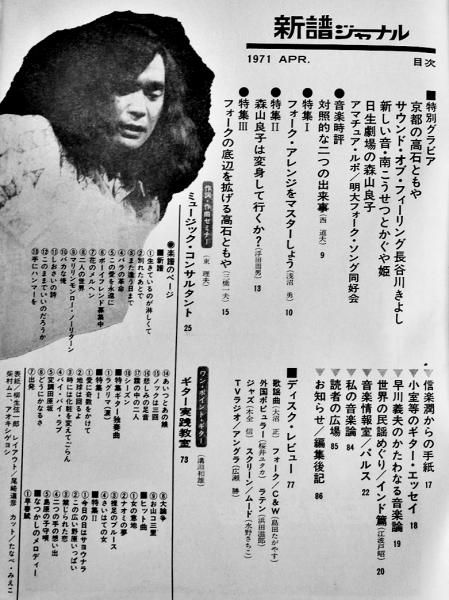 新譜ジャーナル
1971 APR.
目次
■特別グラビア
京都の高石ともや
サウンド・オブ・フィーリング長谷川きよし
新しい音・南こうせつとかぐや姫
日生劇場の森山良子
アマチュア・ルポ/明大フォーク・ソング同好会
●音楽時評
対照的な二つの出来事(西 道夫) 9
●特集Ⅰ
フォーク・アレンジをマスターしよう(浅沼 勇) 10
●特集Ⅱ
森山良子は変身して行くか?(浮田周男) 13
●特集Ⅲ
フォークの底辺を拡げる高石ともや(三橋一夫) 15
作詞・作曲セミナー
ミュージック・コンサルタント 25
(東 理夫)
▼信楽潤からの手紙 17
▼小室等のギター・エッセイ 18
▼早川義夫のかたわなる音楽論 19
▼世界の民謡めぐり/インド篇(江波戸昭) 20
▼音楽情報室/パルス 22
▼私の音楽論 84
▼読者の広場 85
▼お知らせ/編集後記 86
■ディスク・レビュー 77
歌謡曲(大沼 正)フォーク/C&W(島田たがやす)
外国ポピュラー(桜井ユタカ)ラテン(浜田滋郎)
ジャズ(木全 信)スクリーン/ムード(水野さちこ)
TVラジオ/アングラ(広瀬 勝)
ワン・ポイント・ギター
ギター実践教室 73
(湯田和雄)
●楽譜のページ
■新譜
①生きているのが淋しくて
②別れたあとで
③また逢う日まで
④バラの革命
⑤この愛を永遠に
⑥ボーイフレンド募集中
⑦花のメルヘン
⑧二人の世界
⑨マリリン・モンロー・ノーリターン
⑩バカな俺
⑪いおまさの詩
⑫このままでいいのだろうか
⑬手にハンマーを
⑭あいつとあの娘
⑮ステップ三回
⑯悲しみの足音
⑰霧の中の二人
⑱シーズン
■特集ギター独奏曲
①ラグリマ(涙)
■特集Ⅰ
①愛に奇数をかけて
②地球は回るよ
③時には化粧を変えてごらん
④バイ・バイ・ラブ
⑤変調田原坂
⑥どうにかなるさ
⑦出発
⑧大論争
⑨お山コ三里
■ヒット曲
①女の意地
②ナオミの夢
③裸足のブルース
④さいはての女
■特集Ⅱ
①今日の日はサヨウナラ
②この広い野原いっぱい
③禁じられた恋
④二つの手の想い出
⑤島原の子守唄
■なつかしのメロディー
①早春賦
表紙/柳生弦一郎 レイアウト/尾崎道彦 カット/たなべ・みえこ
柴村ムニ、アオキシゲヨシ